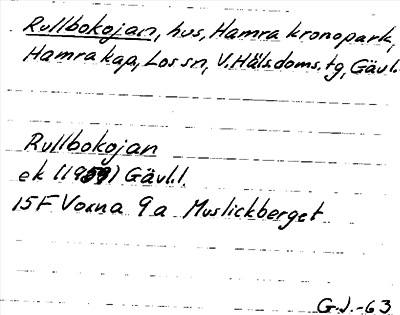 Rullbokojan, hus, Hamra kronopark,
Hamra kap, Los sn, V. Hälsdoms. tg, Gävl.
Rullbokojan
ek (1959) Gävl.l.
15F Voxna 9a Muslickberget
G.J.-63